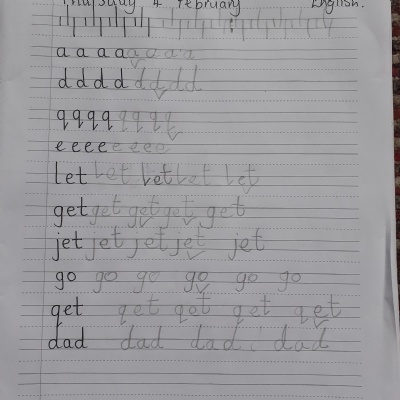 Thursday 4 February English.
a a a a a a a a
d d d d d d d d
q q q q q q q q
e e e e e e e e
let let let let let
get get get get get
jet jet jet jet jet
go go go go go go
qet qet qet qet qet
dad dad dad dad